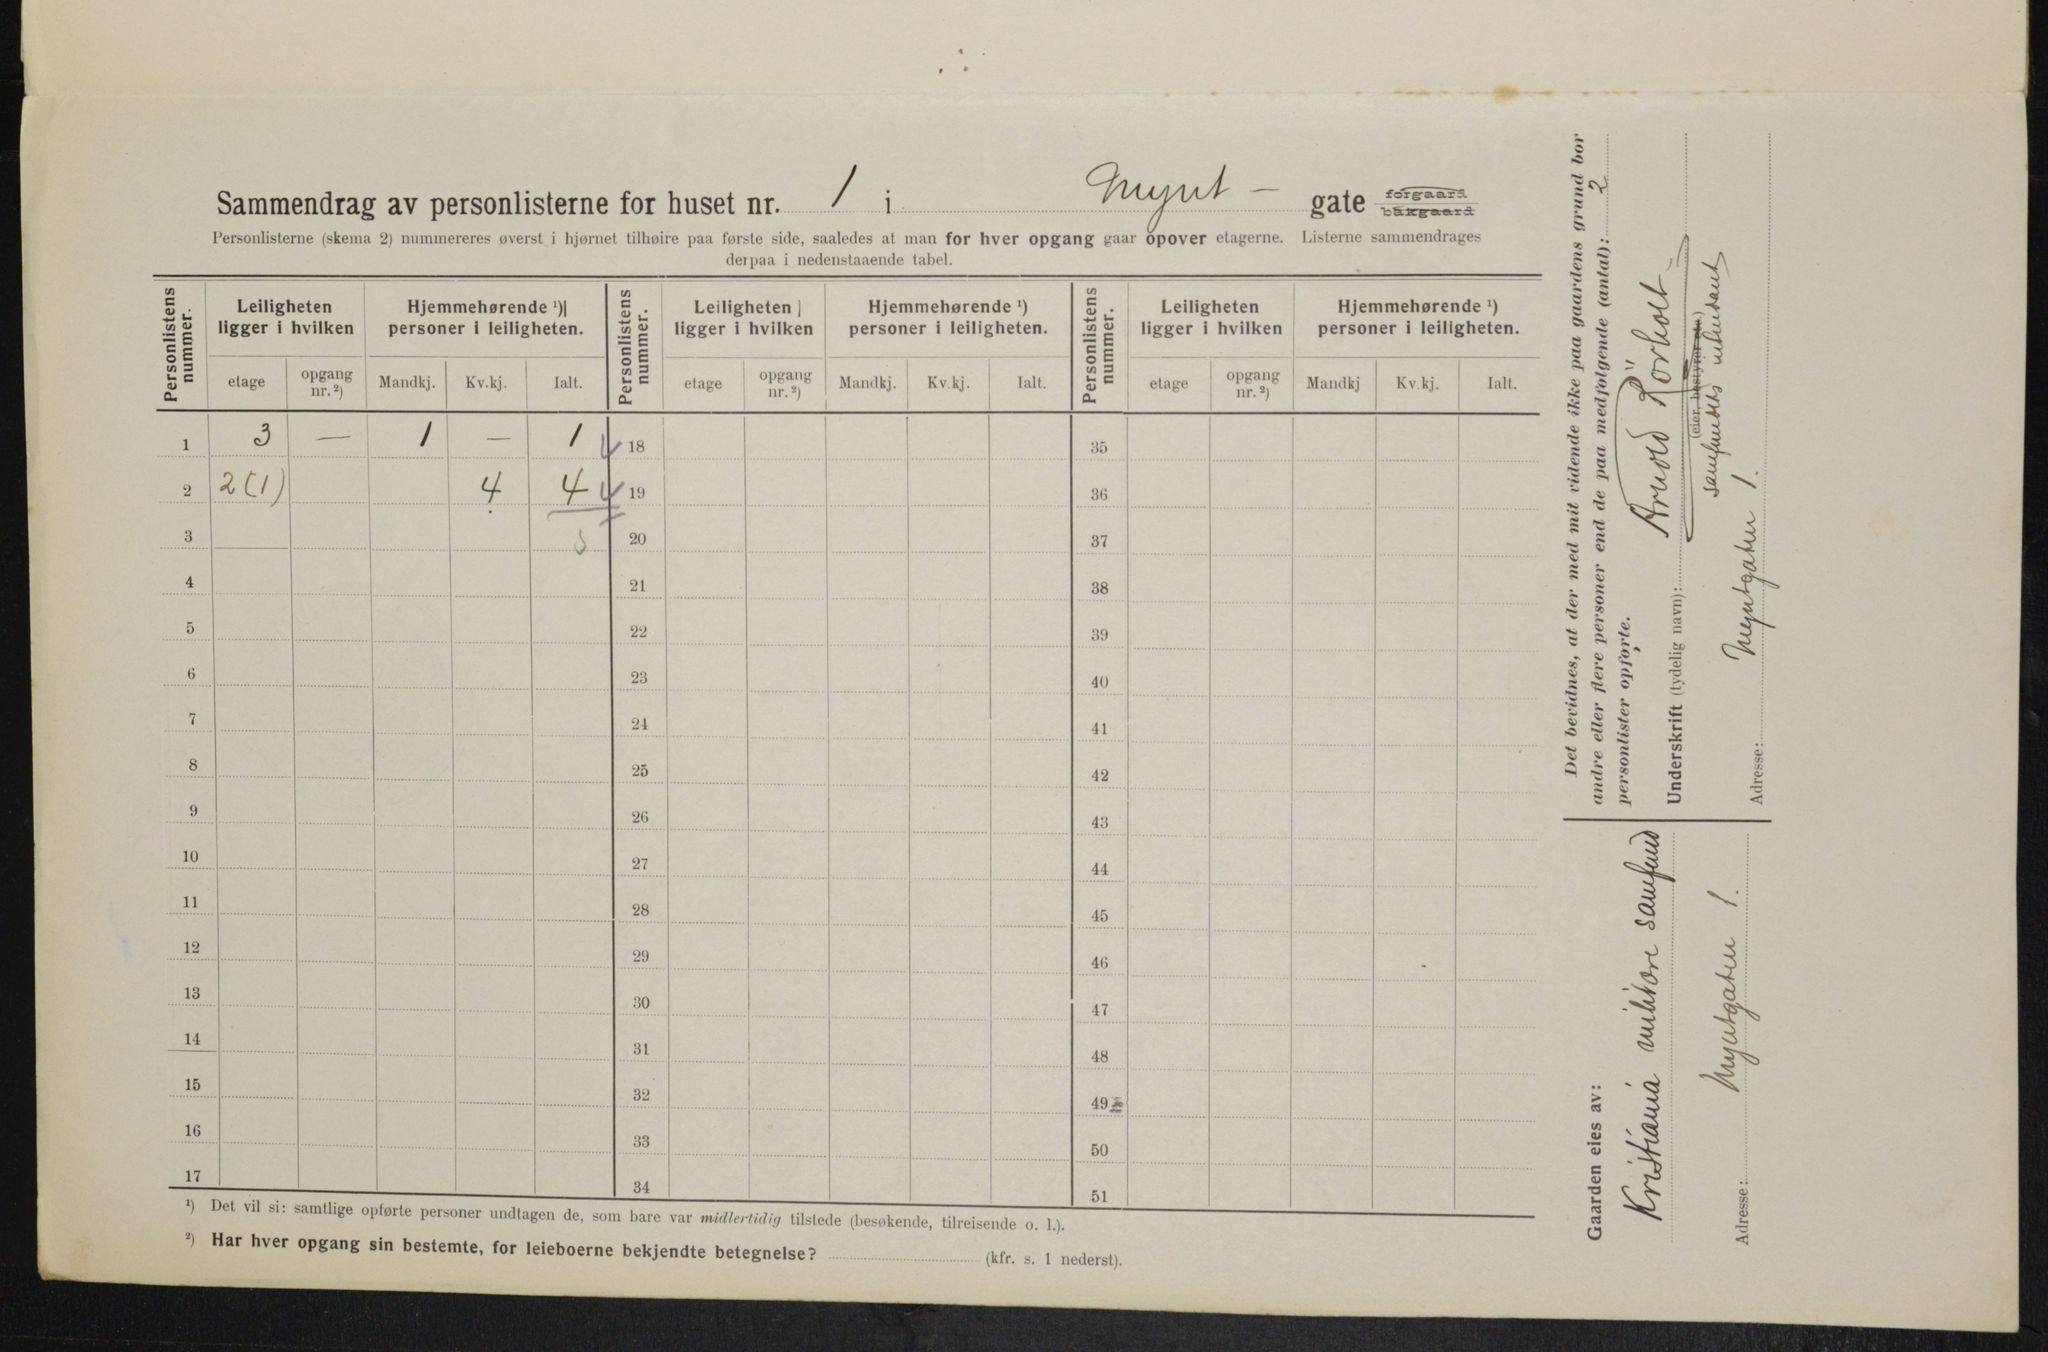 Sammendrag av personlisterne for huset nr. 1 i Mynt- gate forgaard bakgaard
Personlisterne (skema 2) nummereres øverst i hjørnet tilhøire paa første side, saaledes at man for hver opgang gaar opover etagerne. Listerne sammendrages
derpaa i nedenstaaende tabel.
Personlistens nummer. Leiligheten ligger i hvilken Hjemmehørende ¹) personer i leiligheten. Personlistens nummer. Leiligheten ligger i hvilken Hjemmehørende ¹) personer i leiligheten. Personlistens nummer. Leiligheten ligger i hvilken Hjemmehørende ¹) personer i leiligheten.
etage opgang nr. ²) Mandkj. Kv.kj. Ialt. etage opgang nr. ²) Mandkj. Kv.kj. Ialt. etage opgang nr. ²) Mandkj Kv.kj. Ialt.
1 3 — 1 — 1 18 35
2 2 (1) 4 4 19 36
3 5 20 37
4 21 38
5 22 39
6 23 40
7 24 41
8 25 42
9 26 43
10 27 44
11 28 45
12 29 46
13 30 47
14 31 48
15 32 49
16 33 50
17 34 51
¹) Det vil si: samtlige opførte personer undtagen de, som bare var midlertidig tilstede (besøkende, tilreisende o. l.).
²) Har hver opgang sin bestemte, for leieboerne bekjendte betegnelse? (kfr. s. 1 nederst).
Det bevidnes, at der med mit vidende ikke paa gaardens grund bor
andre eller flere personer end de paa medfølgende (antal): 2
personlister opførte.
Underskrift (tydelig navn): Arnold Rörholt
(eier, bestyrer etc.)
samfundets
Adresse: Myntgaten 1.
Gaarden eies av:
Kristiania militære samfund
Adresse: Myntgaten 1.